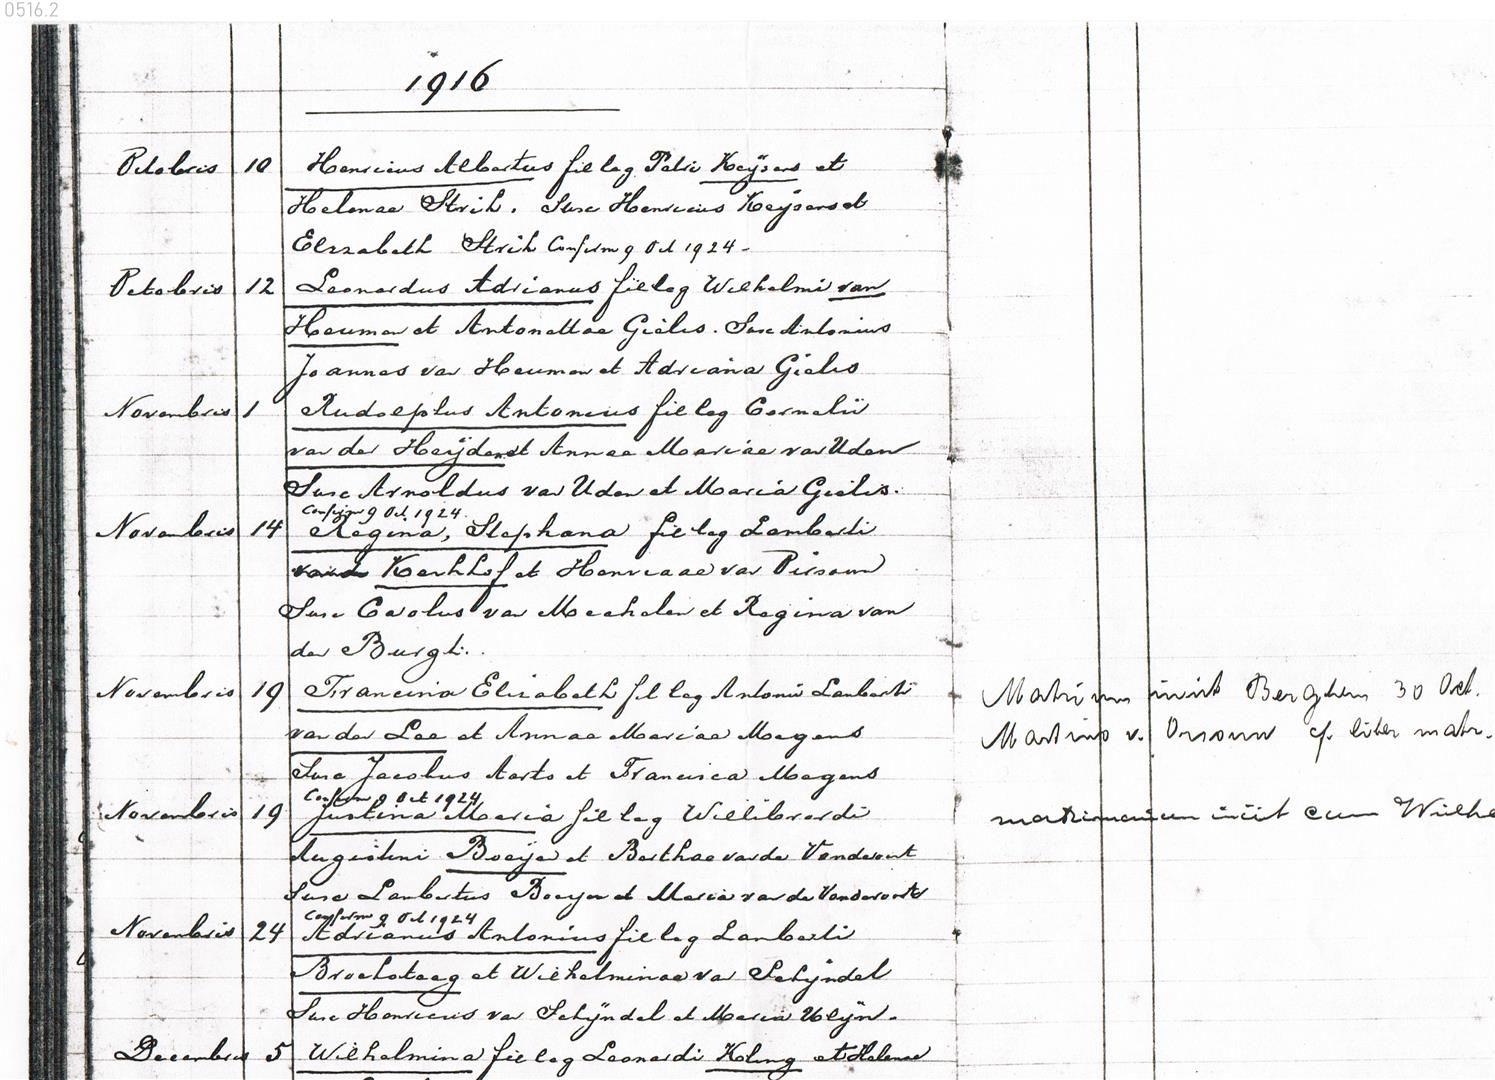 0516.2
1916
Octobris 10 Henricus Albertus fil leg Petri Keijsers et
Helenae Strik. Susc Henricus Keijsers et
Elizabeth Strik Confirm 9 Oct 1924 -
Octobris 12 Leonardus Adrianus fil leg Wilhelmi van
Heumen et Antonettae Gielis. Susc Antonius
Joannes van Heumen et Adriana Gielis
Novembris 1 Rudolphus Antonius fil leg Cornelii
van der Heijden et Annae Mariae van Uden
Susc Arnoldus van Uden et Maria Gielis.
Confirm 9 Oct 1924.
Novembris 14 Regina, Stephana fil leg Lamberti
Kerkhof et Henricae van
Susc Carolus van Mechelen et Regina van
der Burgt.
Novembris 19 Francina Elisabeth fil leg Antonii Lamberti
van der Lee et Annae Mariae Megens
Susc Jacobus Aarts et Francisca Megens
Matrim iniit Berghem 30 Oct.
Martino v. Orsouw cf. liber matr.
Confirm 9 Oct 1924
Novembris 19 Justina Maria fil leg Willibrordi
Augustini Boeijen et Berthae van de
Susc Lambertus Boeijen et Maria van de
matrimonium iniit cum Wilhe
Confirm 9 Oct 1924
Novembris 24 Adrianus Antonius fil leg Lamberti
Broeksteeg et Wilhelminae van Schijndel
Susc Henricus van Schijndel et Maria Uijn.
Decembris 5 Wilhelmina fil leg Leonardi et Helenae